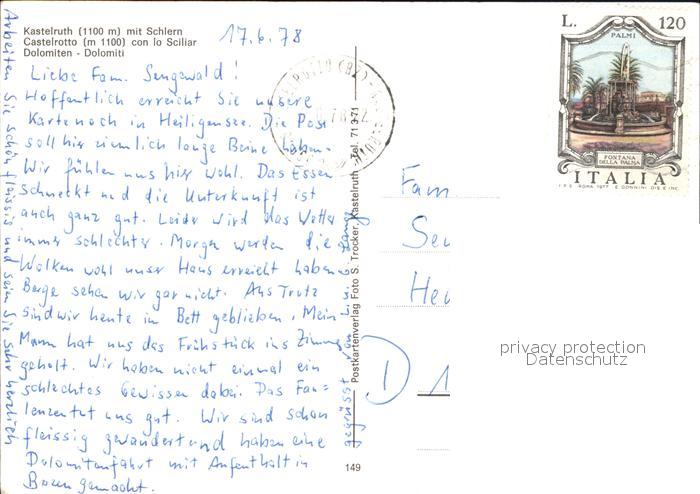 Kastelruth (1100 m) mit Schlern
Castelrotto (m 1100) con lo Sciliar
Dolomiten - Dolomiti
17.6.78
Liebe Fam. Sengewald!
Hoffentlich erreicht Sie unsere
Karte noch in Heiligensee. Die Post
soll hier ziemlich lange Beine haben.
Wir fühlen uns hier wohl. Das Essen
schmeckt und die Unterkunft ist
auch ganz gut. Leider wird das Wetter
immer schlechter. Morgen werden die
Wolken wohl unser Haus erreicht haben
Berge sehen wir gar nicht. Aus Trotz
sind wir heute im Bett geblieben. Mein
Mann hat uns das Frühstück ins Zimmer
geholt. Wir haben nicht einmal ein
schlechtes Gewissen dabei. Das Fau-
lenzen tut uns gut. Wir sind schon
fleissig gewandert und haben eine
Dolomitenfahrt mit Aufenthalt in
Bozen gemacht.
Arbeiten Sie schön fleissig und seien Sie sehr herzlich
gegrüsst von
Postkartenverlag Foto S. Trocker, Kastelruth, Tel. 71 3 71
149
L. 120
PALMI
FONTANA
DELLA PALMA
ITALIA
I.P.S. ROMA 1977 E. DONNINI DIS. E INC.
Fam
Sen
Hei
D 1
privacy protection
Datenschutz